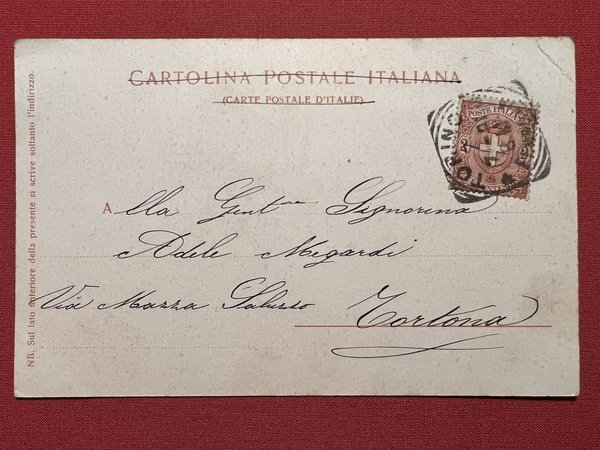 CARTOLINA POSTALE ITALIANA
(CARTE POSTALE D'ITALIE)
POSTE ITALIANE
TORINO
Alla Gent.ma Signorina
Adele Megardi
Via Mazza Saluzzo Tortona
NB. Sul lato anteriore della presente si scrive soltanto l'indirizzo.